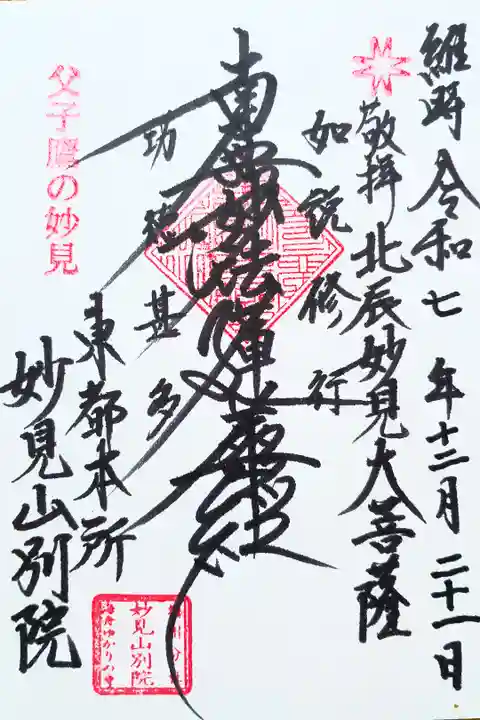 維時令和七年十二月二十一日
敬拝 北辰妙見大菩薩
如説修行
南無妙法蓮華経
功徳甚多
父子鷹の妙見
東都本所
妙見山別院
妙見山別院